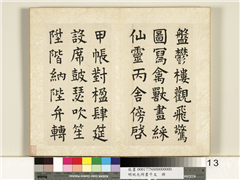 盤鬱樓觀飛驚
圖寫禽獸畫綵
仙靈丙舍傍啓
甲帳對楹肆筵
設席鼓瑟吹笙
陞階納陛弁轉
13